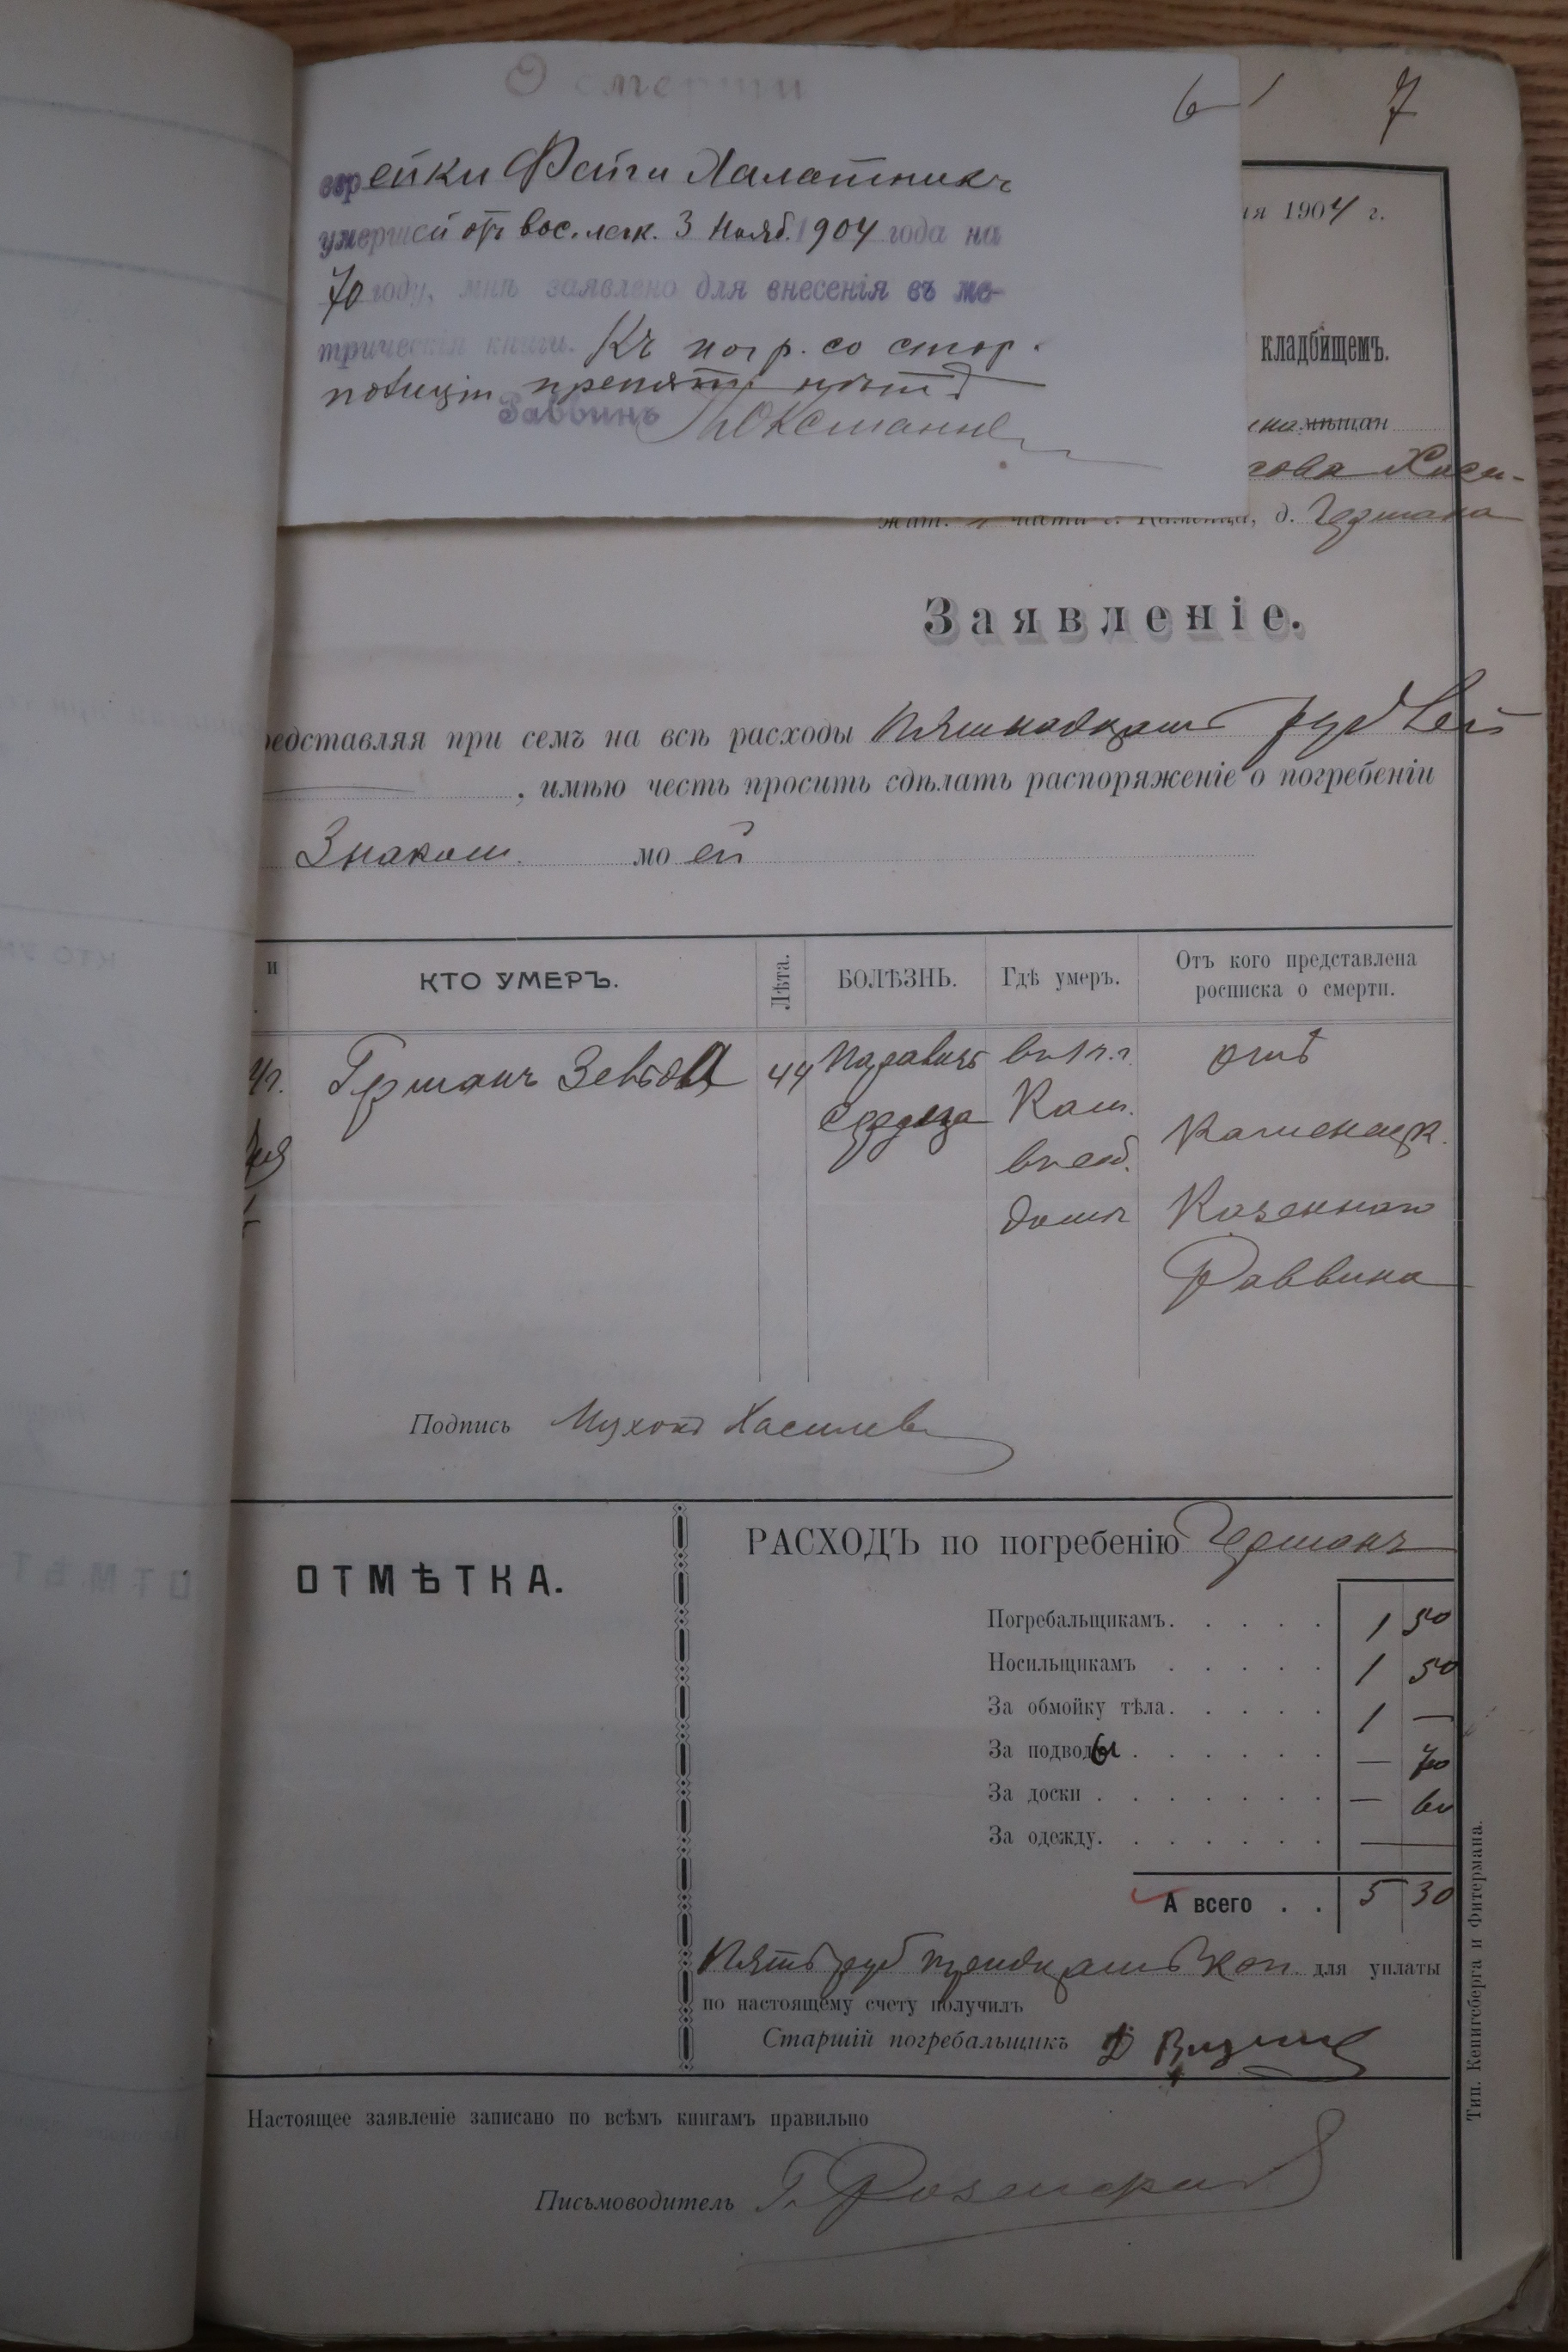 О смерти
6 7
еврейки Фейги Халатникъ
умершей отъ вос. легк. 3 Нояб. 1904 года на
70 году, мнѣ заявлено для внесенія въ ме-
трическія книги. Къ погр. со стор.
полиціи препятст. нѣтъ
Раввинъ
ія 1904 г.
кладбищемъ.
мѣщан
жит. части г. Каменца, д. Германа
Заявленіе.
редставляя при семъ на всѣ расходы пятнадцать рублей
, имѣю честь просить сдѣлать распоряженіе о погребеніи
Знаком. мо ей
и КТО УМЕРЪ. Лѣта. БОЛѢЗНЬ. Гдѣ умеръ. Отъ кого представлена
росписка о смерти.
Германъ 44 Параличъ отъ
сердца Кам. Каменецк.
въ соб.
домѣ Казеннаго
Раввина
Подпись
ОТМѢТКА.
РАСХОДЪ по погребенію Германъ
Погребальщикамъ. 1 50
Носильщикамъ 1 50
За обмойку тѣла. 1 —
За подводы — 70
За доски — 60
За одежду. —
А всего 5 30
Пять руб тридцать коп для уплаты
по настоящему счету получилъ
Старшій погребальщикъ
Тип. Кенигсберга и Фитермана.
Настоящее заявленіе записано по всѣмъ книгамъ правильно
Письмоводитель